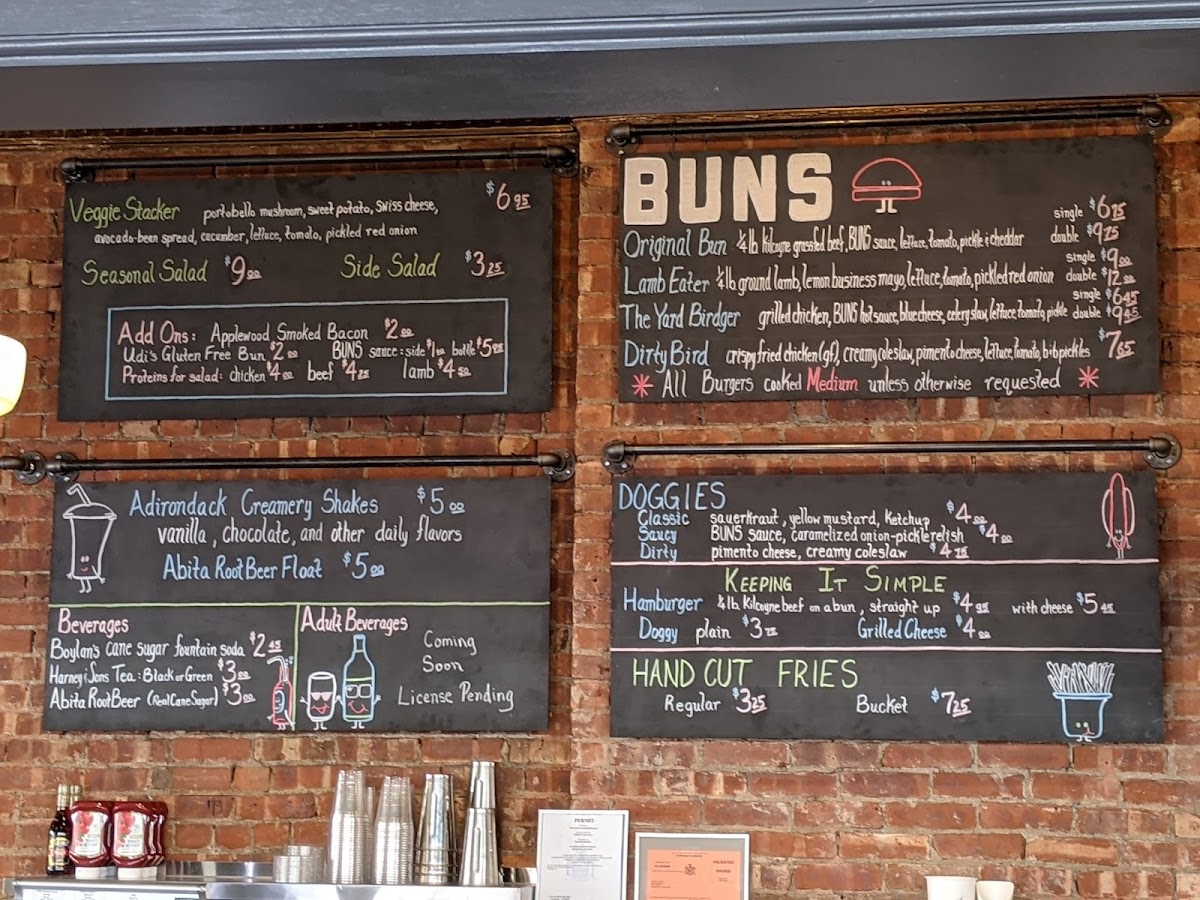 Veggie Stacker portobello mushroom, sweet potato, swiss cheese, $6 95
avocado-bean spread, cucumber, lettuce, tomato, pickled red onion
Seasonal Salad $9 00 Side Salad $3 25
Add Ons: Applewood Smoked Bacon $2 00
Udi's Gluten Free Bun $2 00 BUNS sauce: side $1 00 bottle $5 95
Proteins for salad: chicken $4 00 beef $4 25 lamb $4 50
BUNS
single $6 75
Original Bun ¼ lb kilcoyne grassfed beef, BUNS sauce, lettuce, tomato, pickle & cheddar double $9 75
single $9 00
Lamb Eater ¼ lb ground lamb, lemon business mayo, lettuce, tomato, pickled red onion double $12 00
single $6 45
The Yard Birdger grilled chicken, BUNS hot sauce, blue cheese, celery slaw, lettuce, tomato, pickle double $9 45
Dirty Bird crispy fried chicken (gf), creamy coleslaw, pimento cheese, lettuce, tomato, b+b pickles $7 65
* All Burgers cooked Medium unless otherwise requested *
Adirondack Creamery Shakes $5 00
vanilla, chocolate, and other daily flavors
Abita Root Beer Float $5 00
Beverages
Boylan's cane sugar fountain soda $2 45
Harney & Sons Tea: Black or Green $3 00
Abita Root Beer (Real Cane Sugar) $3 00
Adult Beverages
Coming
Soon
License Pending
DOGGIES
Classic sauerkraut, yellow mustard, Ketchup $4 00
Saucy BUNS sauce, caramelized onion-pickle relish $4 00
Dirty pimento cheese, creamy coleslaw $4 75
KEEPING IT SIMPLE
Hamburger ¼ lb. Kilcoyne beef on a bun, straight up $4 95 with cheese $5 45
Doggy plain $3 75 Grilled Cheese $4 00
HAND CUT FRIES
Regular $3 25 Bucket $7 25
PERMIT